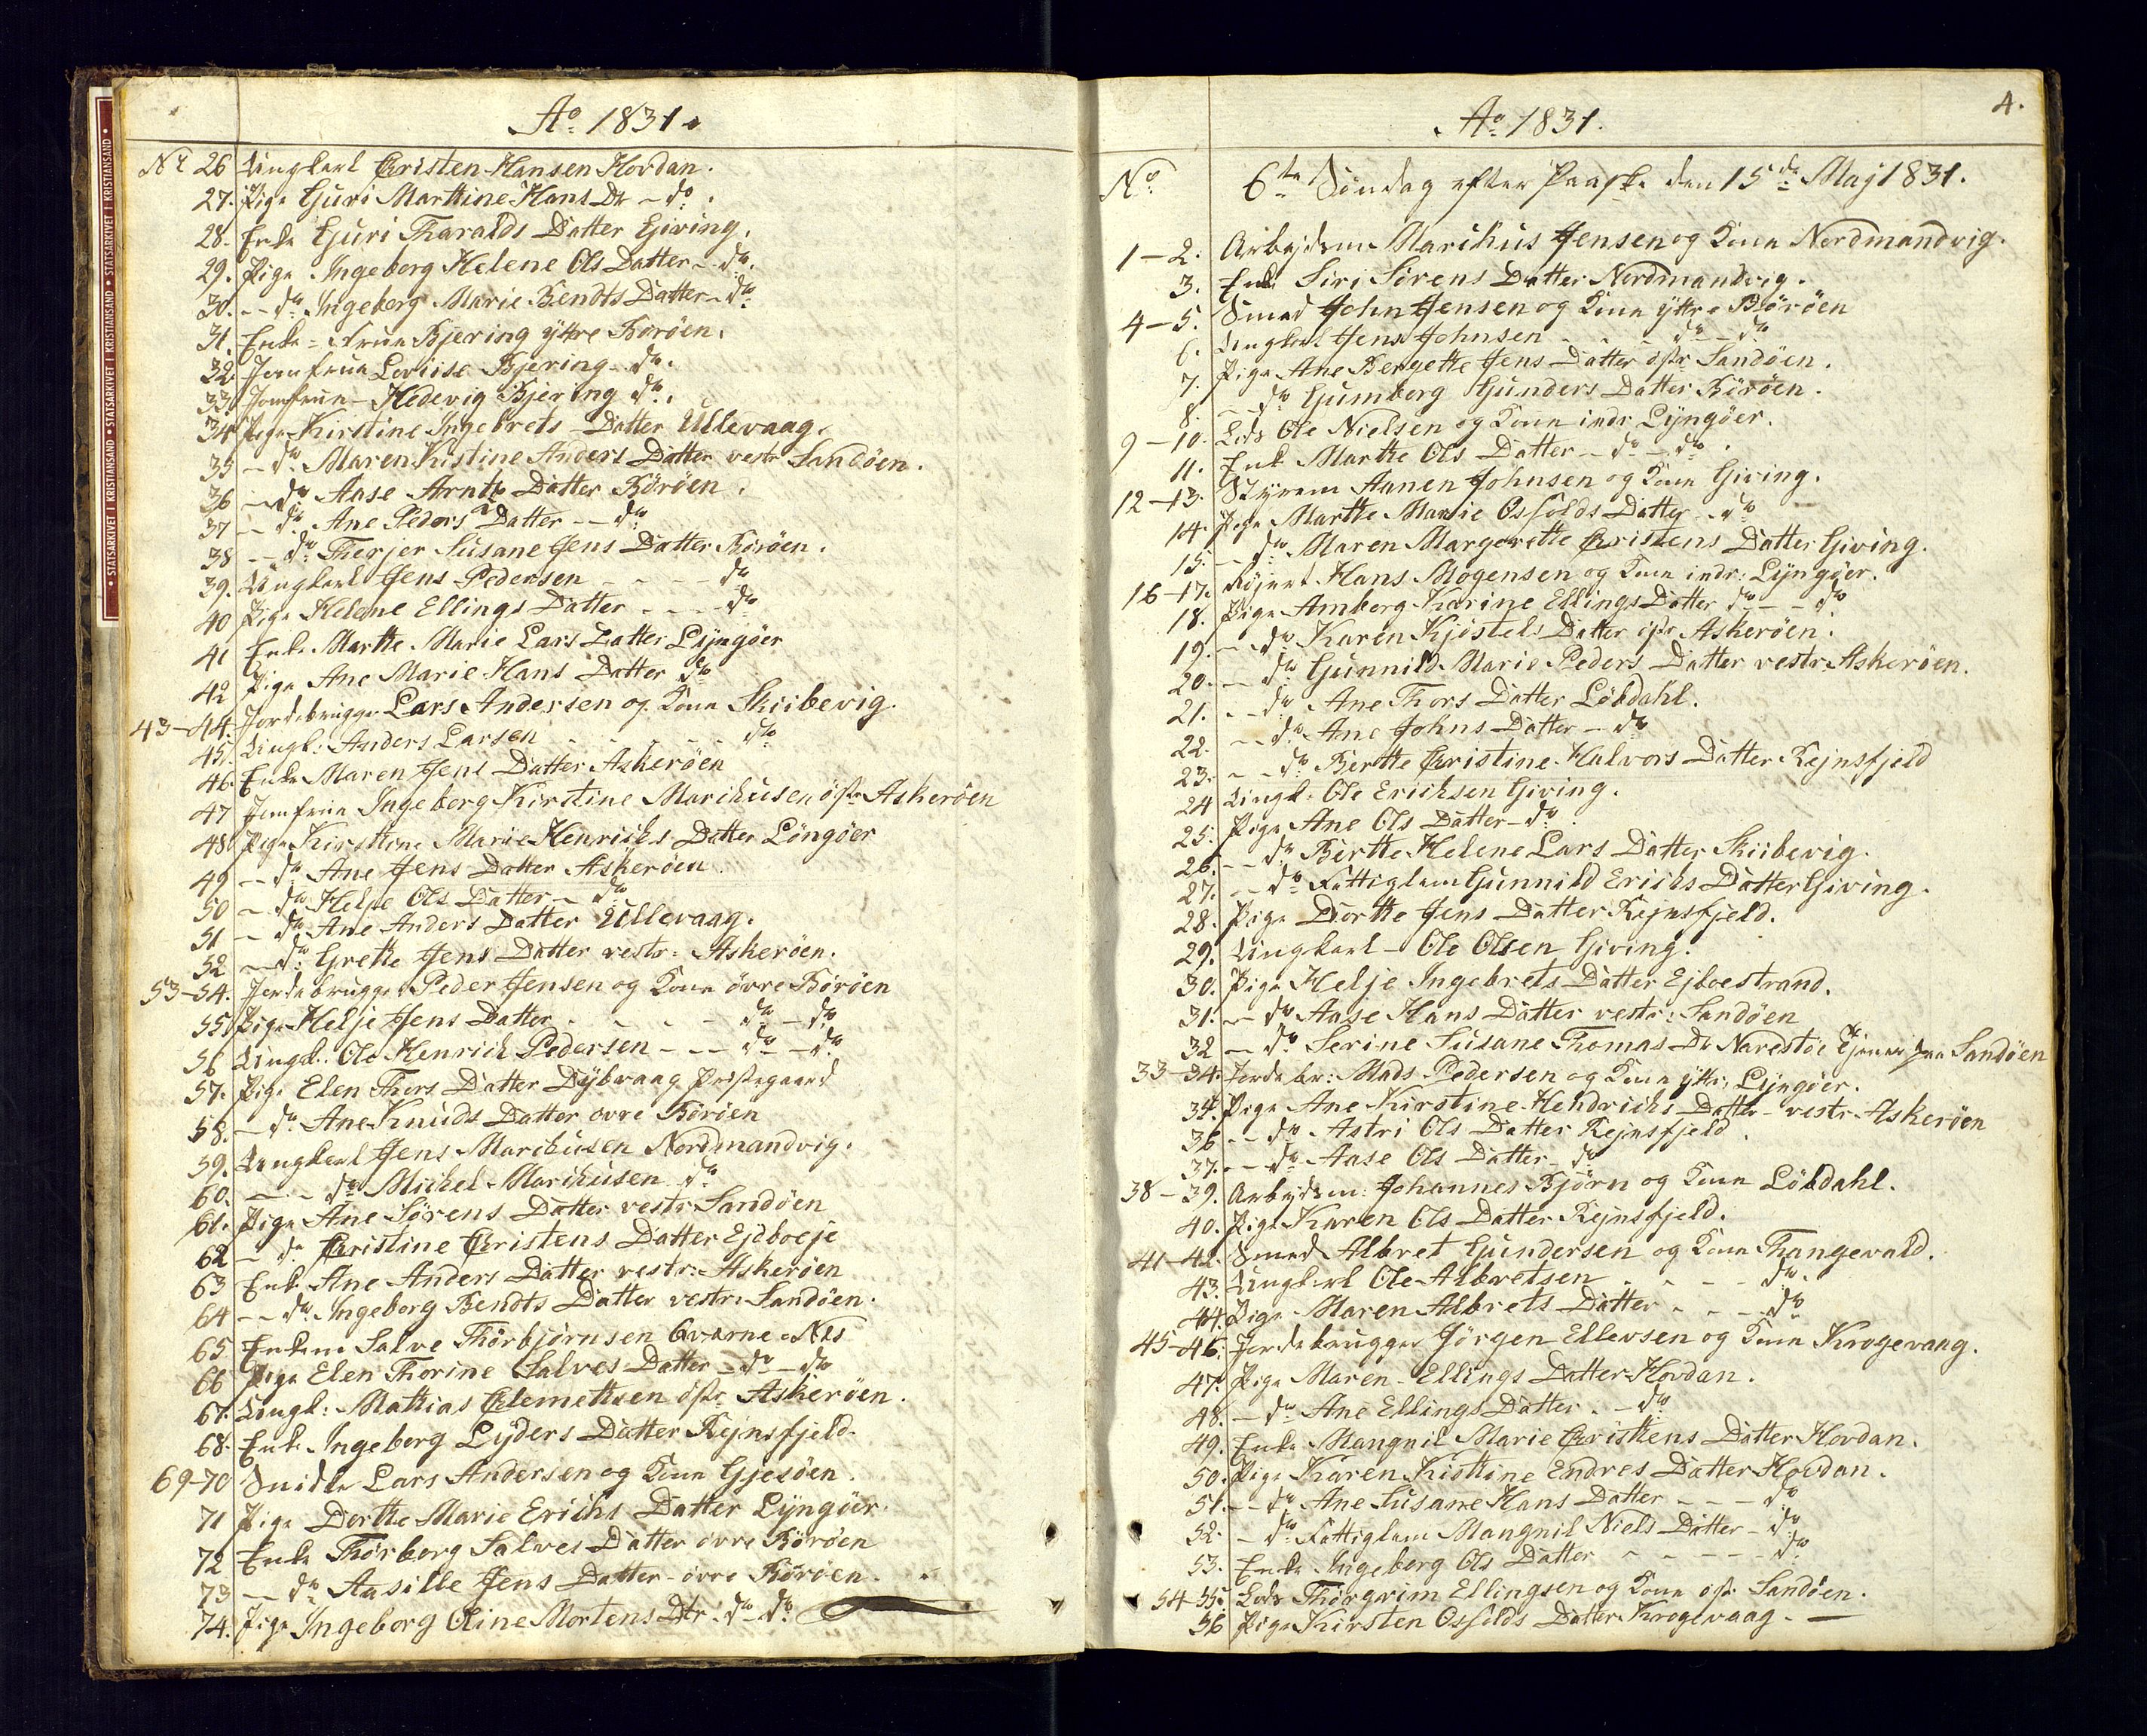 STATSARKIVET I KRISTIANSAND • STATSARKIVET I KRISTIANSAND • STATSARKIVET I KRISTIANSAND •
Ao 1831.
No 26 Ungkarl Christen Hansen Hovdan.
27. Pige Guri Marttine Hans Dtr – do.
28. Enke Guri Tharalds Datter Giving.
29. Pige Ingeborg Helene Ols Datter – do.
30. – do Ingeborg Marie Bendts Datter – do
31. Enke – Frue Bjering yttre Borøen.
32. Jomfrue Loviise Bjering do.
33. Jomfrue – Hedevig Bjering do.
34 Pige Kirstine Ingebrets Datter Ullevaag.
35 – do Maren Kistine Anders Datter vestr Sandøen.
36 – do Aase Arnts Datter Börøen.
37 – do Ane Peders Datter – – do
38 – do Therjer Susane Jens Datter Börøen.
39. Ungkarl Jens Pedersen – – – do
40 Pige Helene Ellings Datter – – – do
41 Enke Marthe Marie Lars Datter Lyngöer
42 Pige Ane Marie Hans Datter do
43–44. Jordebrugger Lars Andersen og Kone Skiibevig.
45. Ungk: Anders Larsen – – – do
46. Enke Maren Jens Datter Askerøen
47 Jomfrue Ingeborg Kirstine Marihusen östr Askerøen
48 Pige Kirsttine Marie Henrichs Datter Löngöer
49 – do Ane Jens Datter Askerøen.
50 – do Helje Ols Datter – do
51 – do Ane Anders Datter Ullevaag.
52 – do Grette Jens Datter vestr: Askerøen.
53–54. Jordebrugger Peder Jensen og Kone övre Börøen
55. Pige Helje Jens Datter – – – – do – do
56 Ungk. Ole Henrich Pedersen – – – do – do
57. Pige Elen Thors Datter Dybvaag Prestegaard
58. – do Ane Knuds Datter ovre Börøen
59. Ungkarl Jens Marihusen Nordmandvig.
60. – – do Michel Marihusen do
61. Pige Ane Sörens Datter vestr Sandøen
62 – do Christine Christens Datter Ejdboeje
63 Enke Ane Anders Datter vestr: Askerøen
64 – – do Ingeborg Bendts Datter vestr: Sandøen.
65. Enkem Salve Thörbjörnsen Qvarne-Nes
66 Pige Elen Thorine Salves Datter – do – do
67. Ungk: Mathias Clemettsen östr Askerøen.
68. Enke Ingeborg Lyders Datter Rejnsfjeld.
69–70 Snidker Lars Andersen og Kone Gjesöen.
71 Pige Dortte Marie Erichs Datter Lyngöer.
72 Enke Thörborg Salves Datter övre Börøen
73 – do Aasille Jens Datter – övre Börøen.
74. Pige Ingeborg Oline Mortens Dtr – do do
4.
Ao 1831.
No 6te Söndag efter Paaske den 15de Maj 1831.
1–2. Arbejdsm Marihus Jensen og Kone Nordmandvig.
3. Enke Siri Sörens Datter Nordmandvig.
4–5. Smed John Jensen og Kone yttre Börøen
6. Ungkarl Jens Johnsen – – do – do
7. Pige Ane Bergette Jens Datter östr Sandøen.
8. – do Gumborg Gunders Datter Börøen.
9–10. Lods Ole Nielsen og Kone indr Lyngöer.
11. Enke Marthe Ols Datter – do – do.
12–13. Styrem Aanen Johnsen og Kone Giving.
14. Pige Marthe Marie Osfolds Datter – do
15. – do Maren Margerette Christens Datter Giving.
16–17. Rejert Hans Mogensen og Kone indr: Lyngöer.
18. Pige Amberg Karine Ellings Datter do – – do
19. – do Karen Kjöstels Datter östr Askerøen.
20. – do Gunnild Marie Peders Datter vestr Askerøen.
21. – do Ane Thors Datter Löbdahl.
22. – do Ane Johns Datter – do
23. – – do Bertte Christine Halvors Datter Rejnsfjeld
24 Ungk: Ole Erichsen Giving.
25. Pige Ane Ols Datter – do
26. – do Birtte Helene Lars Datter Skiibevig.
27. – do Fattiglem Gunnild Erichs Datter Giving.
28. Pige Dortte Jens Datter Rejnsfjeld.
29. Ungkarl – Ole Olsen Giving.
30. Pige Helje Ingebrets Datter Ejboestrand.
31. – do Aase Hans Datter vestr: Sandøen
32 – do Serine Susane Thomas Dtr Narestöe Tjener paa Sandøen
33–34. Jordebr: Mads Pedersen og Kone yttr, Lyngöer.
34. Pige Ane Kirstine Hendrichs Datter – vestr. Askerøen
36 – – do Astri Ols Datter Rejnsfjeld.
37. – – do Aase Ols Datter do
38–39. Arbejdsm: Johannes Björn og Kone Löbdahl.
40. Pige Karen Ols Datter Rejnsfjeld.
41–42. Smed Albret Gundersen og Kone Thangevald.
43. Ungkarl Ole Albretsen – – – do.
44. Pige Maren Albrets Datter – – – do
45–46. Jordebrugger Jörgen Ellevsen og Kone Krogevaag.
47. Pige Maren Ellings Datter Hovdan.
48. – do Ane Ellings Datter – do
49. Enke Mangnil Marie Christens Datter Hovdan.
50. Pige Karen Kisttine Endres Datter Hovdan.
51. – – do Ane Susane Hans Datter – – – do
52. – do Fattiglem Mangnil Niels Datter – do
53. Enke Ingeborg Ols Datter – – – – do
54–55. Lods Thörgrim Ellingsen og Kone östr Sandøen.
56 Pige Kirsten Osfolds Datter Krogevaag. –